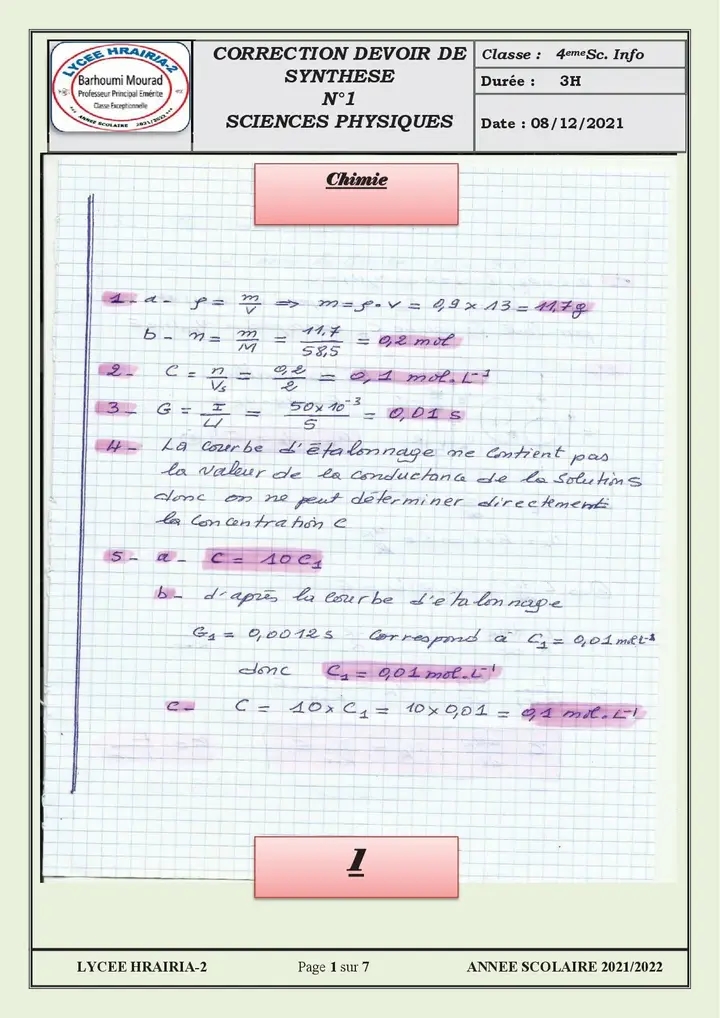 LYCEE HRAIRIA-2
Barhoumi Mourad
Professeur Principal Emérite
Classe Exceptionnelle
ANNEE SCOLAIRE 2021/2022
CORRECTION DEVOIR DE
SYNTHESE
N°1
SCIENCES PHYSIQUES
Classe : 4emeSc. Info
Durée : 3H
Date : 08/12/2021
Chimie
1 - a - ρ = m/V ⇒ m = ρ.v = 0,9 x 13 = 11,7g
b - n = m/M = 11,7/58,5 = 0,2 mol
2 - C = n/Vs = 0,2/2 = 0,1 mol.L⁻¹
3 - G = I/U = 50x10⁻³/5 = 0,01 s
4 - La courbe d'étalonnage ne contient pas
la valeur de la conductance de la solution S
donc on ne peut déterminer directement
la concentration C
5 - a - C = 10 C₁
b - d'après la courbe d'etalonnage
G₁ = 0,0012 s correspond à C₁ = 0,01 mol.L⁻¹
donc C₁ = 0,01 mol.L⁻¹
c - C = 10 x C₁ = 10 x 0,01 = 0,1 mol.L⁻¹
1
LYCEE HRAIRIA-2 Page 1 sur 7 ANNEE SCOLAIRE 2021/2022